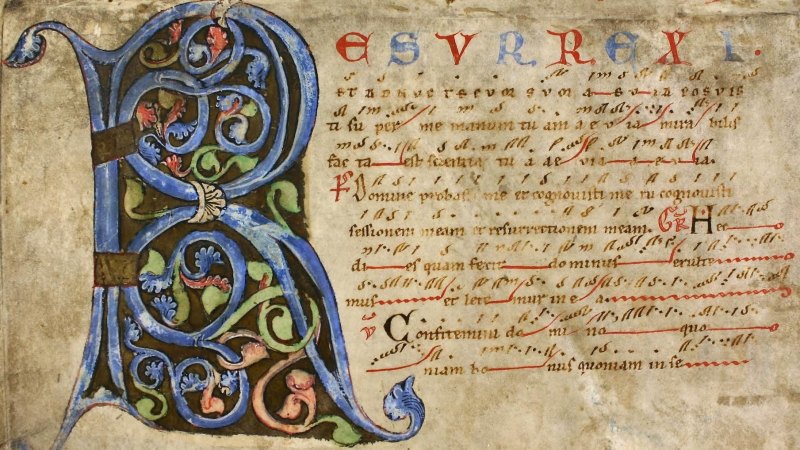 RESURREXI.
ET ADHUC TECUM SUM A EUIA POSUIS
ti su per me manum tu am a e v ia mira bilis
fac ta est scientia tu a ae via a e v ia.
Domine probasti me et cognovisti me tu cognovisti
sessionem meam et resurrectionem meam. GR Hec
di es quam fecit dominus exulte
mus et lete mur in e a
V Confitemini do mi no quo
niam bo nus quoniam in se